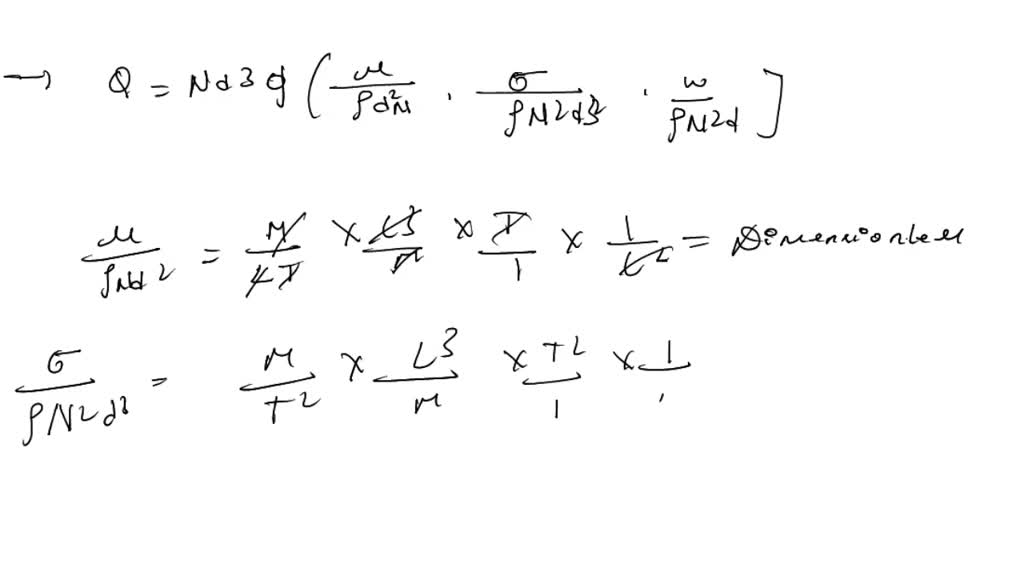 → Q = Nd3 φ ( μ/ρd²N . σ/ρN2d3 . w/ρN2d ]
μ/ρNd2 = M/LT × L3/M × T/1 × 1/L2 = Dimensionless
σ/ρN2d3 = M/T2 × L3/M × T2/1 × 1/